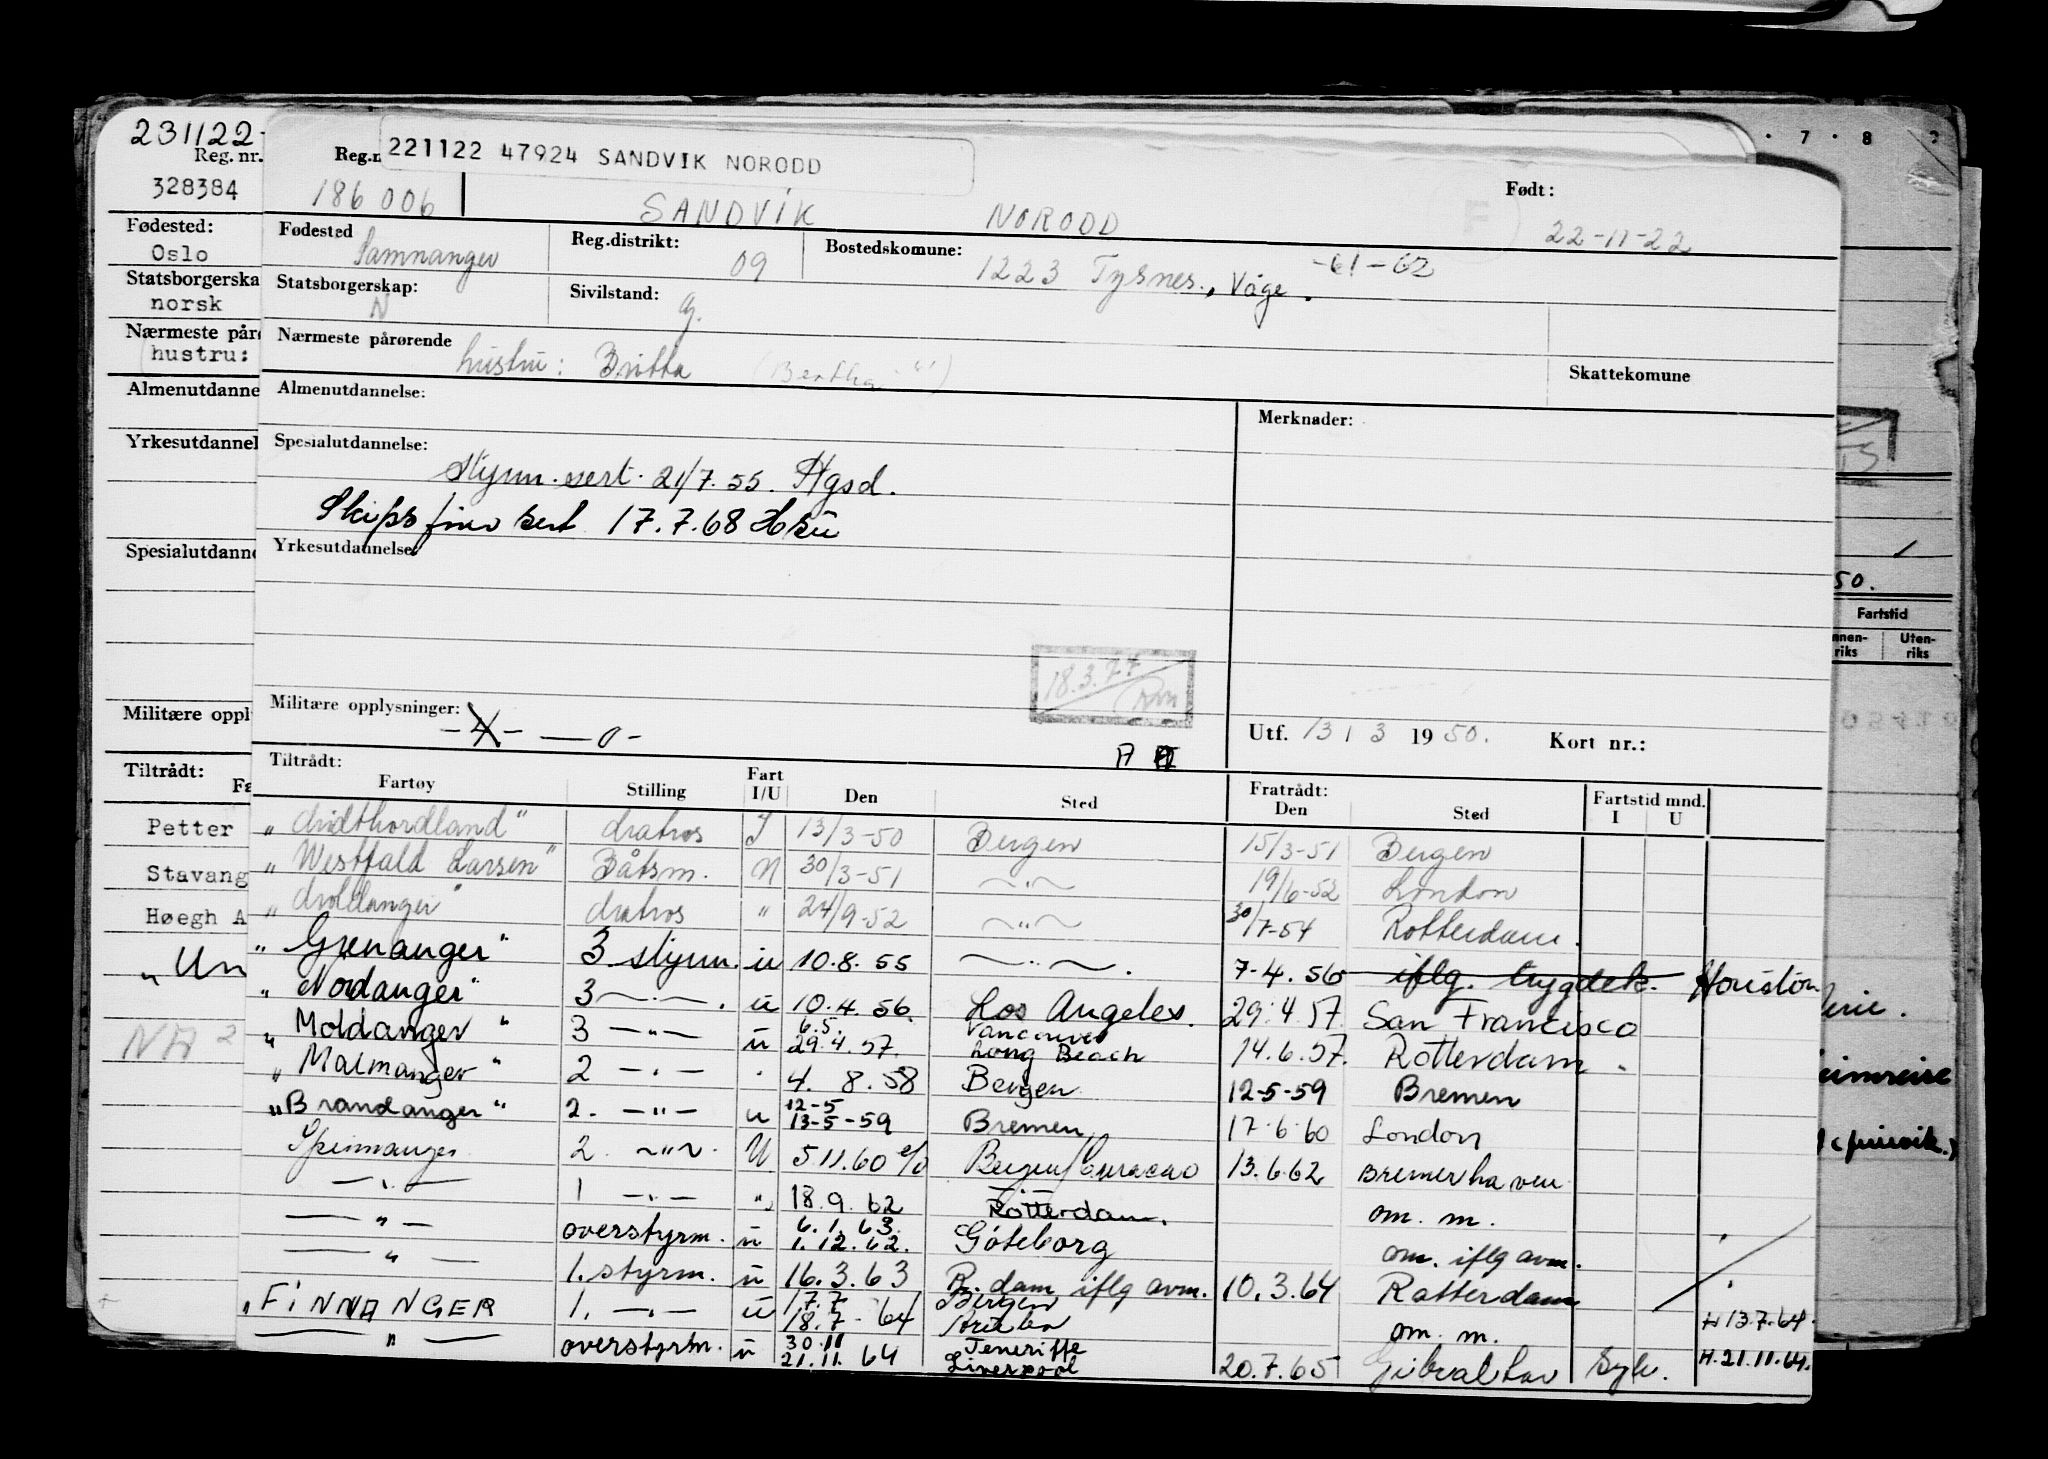 231122-
Reg. nr.
328384
Fødested:
Oslo
Statsborgerska
norsk
Nærmeste pårø
hustru:
Almenutdanne
Yrkesutdannel
Spesialutdanne
Militære oppl
Tiltrådt:
Fa
Petter
Stavang
Høegh A
„ Un
NA 2
Reg.n
221122 47924 SANDVIK NORODD
Født:
186 006 SANDVIK NORODD 22-11-22
Fødested Samnanger Reg.distrikt: 09 Bostedskomune: 1223 Tysnes., Våge. -61-62
Statsborgerskap: N Sivilstand: g.
Nærmeste pårørende hustru: Britta (Bertha "")
Skattekomune
Almenutdannelse:
Merknader:
Spesialutdannelse:
Styrm. sert. 21/7.55. Hgsd.
Skipsfører sert 17.7.68 Hsu
Yrkesutdannelse
18.3.77
Militære opplysninger: -4- —o-
Utf. 13 / 3 1950. Kort nr.:
Tiltrådt: Fratrådt:
Fartøy Stilling Fart I/U Den Sted Den Sted Fartstid mnd. I U
„Midthordland" Matros I 13/3-50 Bergen 15/3-51 Bergen
„Westfald Larsen" Båtsm. N 30/3-51 ~"~ 19/6-52 London
„Moldanger" Matros " 24/9-52 ~"~ 30/7-54 Rotterdam.
„Grenanger" 3 styrm. u 10.8.55 ~"~. 7-4.56 iflg. trygdek. Houston
„Nordanger" 3 —"—. u 10.4.56. Los Angeles. 29.4.57. San Francisco
„Moldanger" 3 —"— u 6.5. 29.4.57. Vancouver Long Beach 14.6.57. Rotterdam.
„Malmanger" 2 —"— " 4. 8.58 Bergen 12-5-59 Bremen
„Brandanger" 2. —"— u 12-5 13-5-59 Bremen 17.6.60 London
Speimanger 2. ~"~. U 5.11.60 e/o Bergen/Curacao 13.6.62 Bremerhaven
—"— 1 —"— " 18.9.62 Rotterdam. om. m.
—"— overstyrm. u 6.1.63. 1.12.62. Göteborg om. iflg avm.
—"— 1. styrm. u 16.3.63 R.dam iflg avm. 10.3.64 Rotterdam
„FINNANGER 1. —"— u 17.7 18.7-64 Bergen om. m. H 13.7.64.
—"— overstyrm. u 30.11 21.11. 64 Teneriffe Liverpool 20.7.65 Gibraltar Syk. H.21.11.64.
7 · 8
50.
Fartstid
nnen-
riks
Uten-
riks